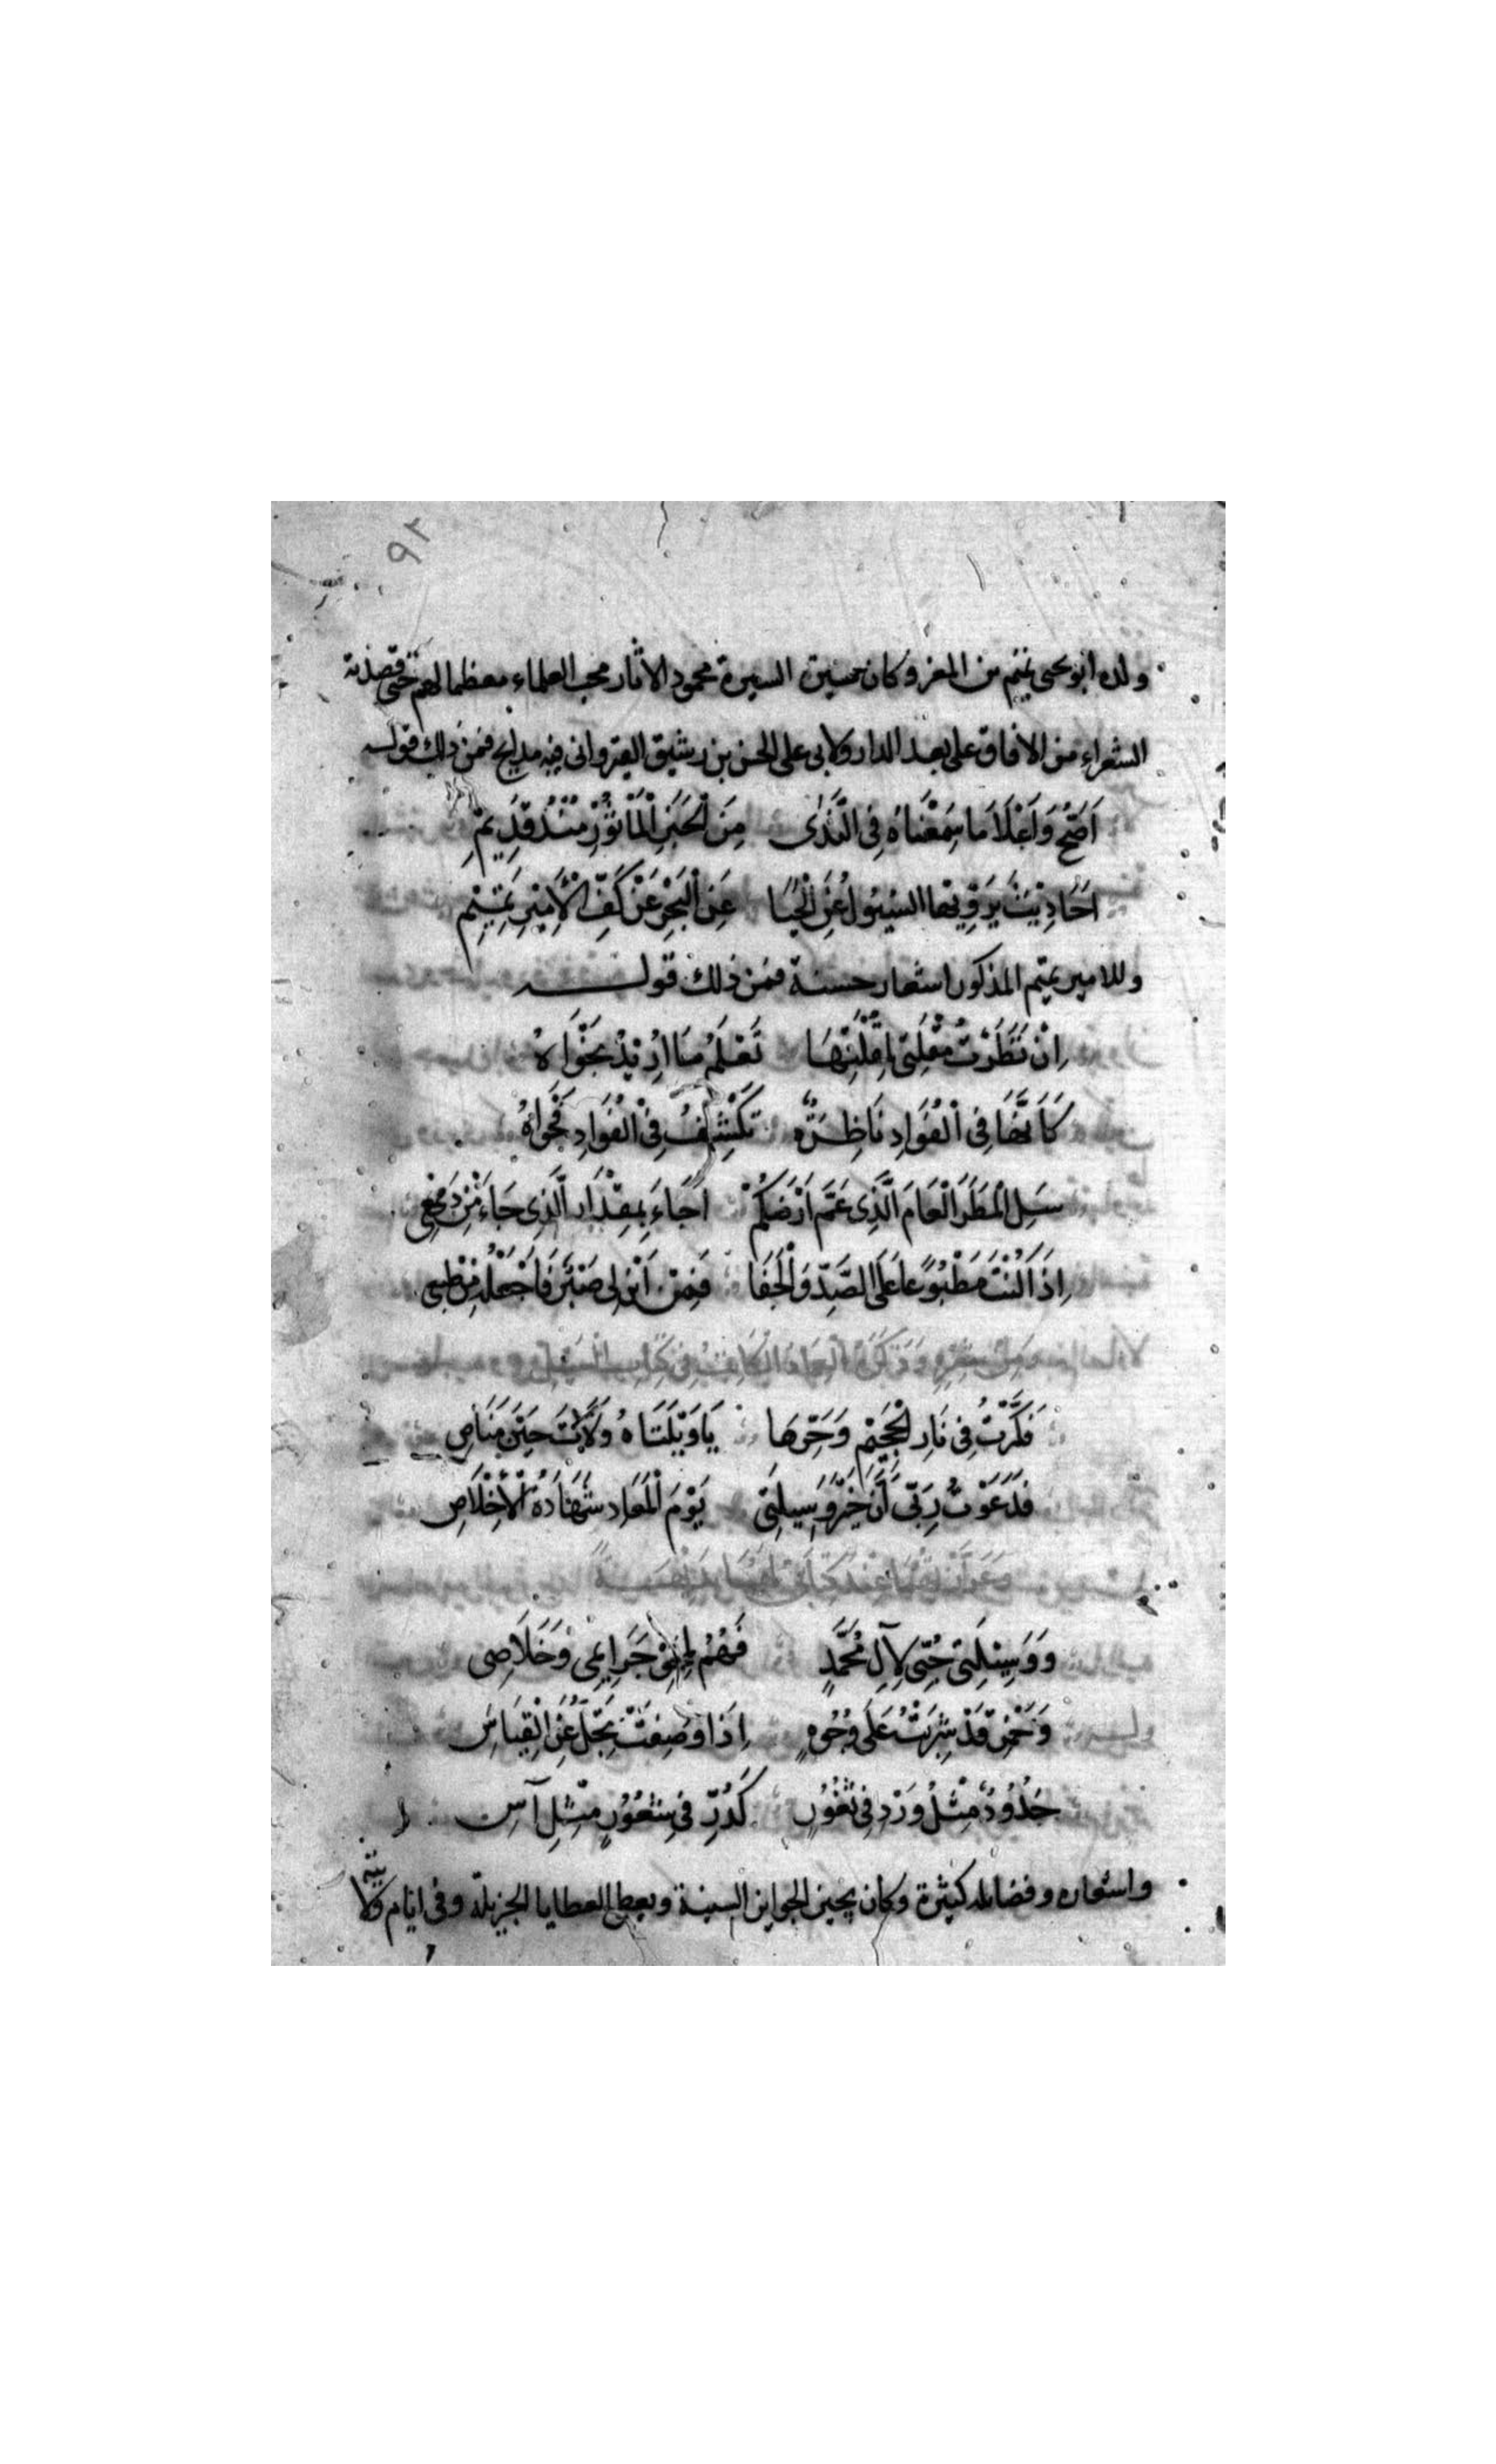 ٩٢
ولده ابو يحيى تميم بن المعز وكان حسين السيرة محمود الاثار محب العلماء معظما لهم حتى قصدته
الشعراء من الافاق على بعد الدار ولابى على الحسن بن رشيق القيروانى فيه مدايح فمن ذلك قوله
اَصَحُّ وَاَعْلَا مَا سَمِعْنَاهُ فِى النَّدٰى مِنَ الْخَبَرِ الْمَاْثُوْرِ مُنْذُ قَدِيْمِ
اَحَادِيْثُ يَرْوِيْهَا السُّيُولُ عَنِ الْحَيَا عَنِ الْبَحْرِ عَنْ كَفِّ الْاَمِيْرِ تَمِيْمِ
وللامير تميم المذكور اشعار حسنة فمن ذلك قوله
اِنْ نَظَرَتْ مُقْلَتِى لِمُقْلَتِهَا تَعْلَمُ مَا اُرِيْدُ نَجْوَاهُ
كَاَنَّهَا فِى الْفُوَادِ نَاظِرَةٌ تَكْشِفُ فِى الْفُوَادِ فَحْوَاهُ
سَلِ الْمَطَرَ الْعَامَ الَّذِى عَمَّ اَرْضَكُمْ اَجَاءَ بِمِقْدَارِ الَّذِى جَاءَ مِنْ دَمْعِى
اِذَا كُنْتَ مَطْبُوْعًا عَلَى الصَّدِّ وَالْجَفَا فَمِنْ اَيْنَ لِى صَبْرٌ فَاَجْعَلُهُ مِنْ طَبْعِى
فَكَّرْتُ فِى نَارِ الْجَحِيْمِ وَحَرِّهَا يَا وَيْلَتَاهُ وَلَاتَ حِيْنَ مَنَاصِ
فَدَعَوْتُ رَبِّى اَنَّ خَيْرَ وَسِيلَتِى يَوْمَ الْمَعَادِ شَهَادَةُ الْاِخْلَاصِ
وَوَسِيْلَتِى حُبِّى لِآلِ مُحَمَّدٍ فَهُمُ جَرَايِمِى وَخَلَاصِى
وَخَمْرٍ قَدْ شَرِبْتُ عَلَى وُجُوهٍ اِذَا وُصِفَتْ تَجِلُّ عَنِ الْقِيَاسِ
خُدُودٌ مِثْلُ وَرْدٍ فِى ثُغُوْرٍ كَدُرٍّ فِى شُعُوْرٍ مِثْلِ آسِ
واشعاره وفضايله كثيرة وكان يجيز الجوايز السنية ويعطى العطايا الجزيلة وفى ايام ولايته